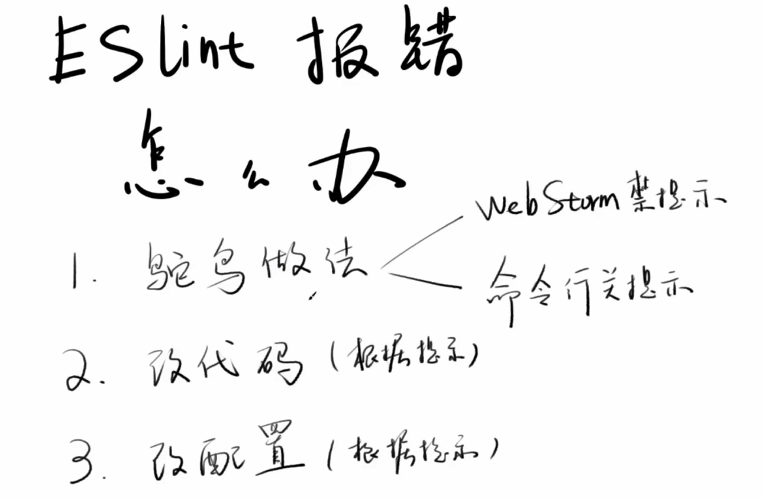 ESlint 报错
怎么办
WebStorm 禁提示
1. 鸵鸟做法
命令行关提示
2. 改代码(根据提示)
3. 改配置(根据提示)